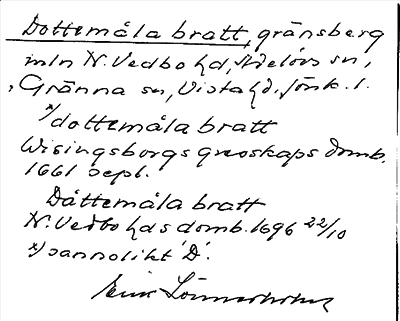 Dottemåla bratt, gränsberg
mln N. Vedbo hd, Adelövs sn,
Gränna sn, Vista hd, Jönk. l.
x/ dottemåla bratt
Wisingsborgs grevskaps domb.
1661 sept.
Dåttemåla bratt
N. Vedbo hds domb. 1696 22/10
x/ sannolikt 'D'.